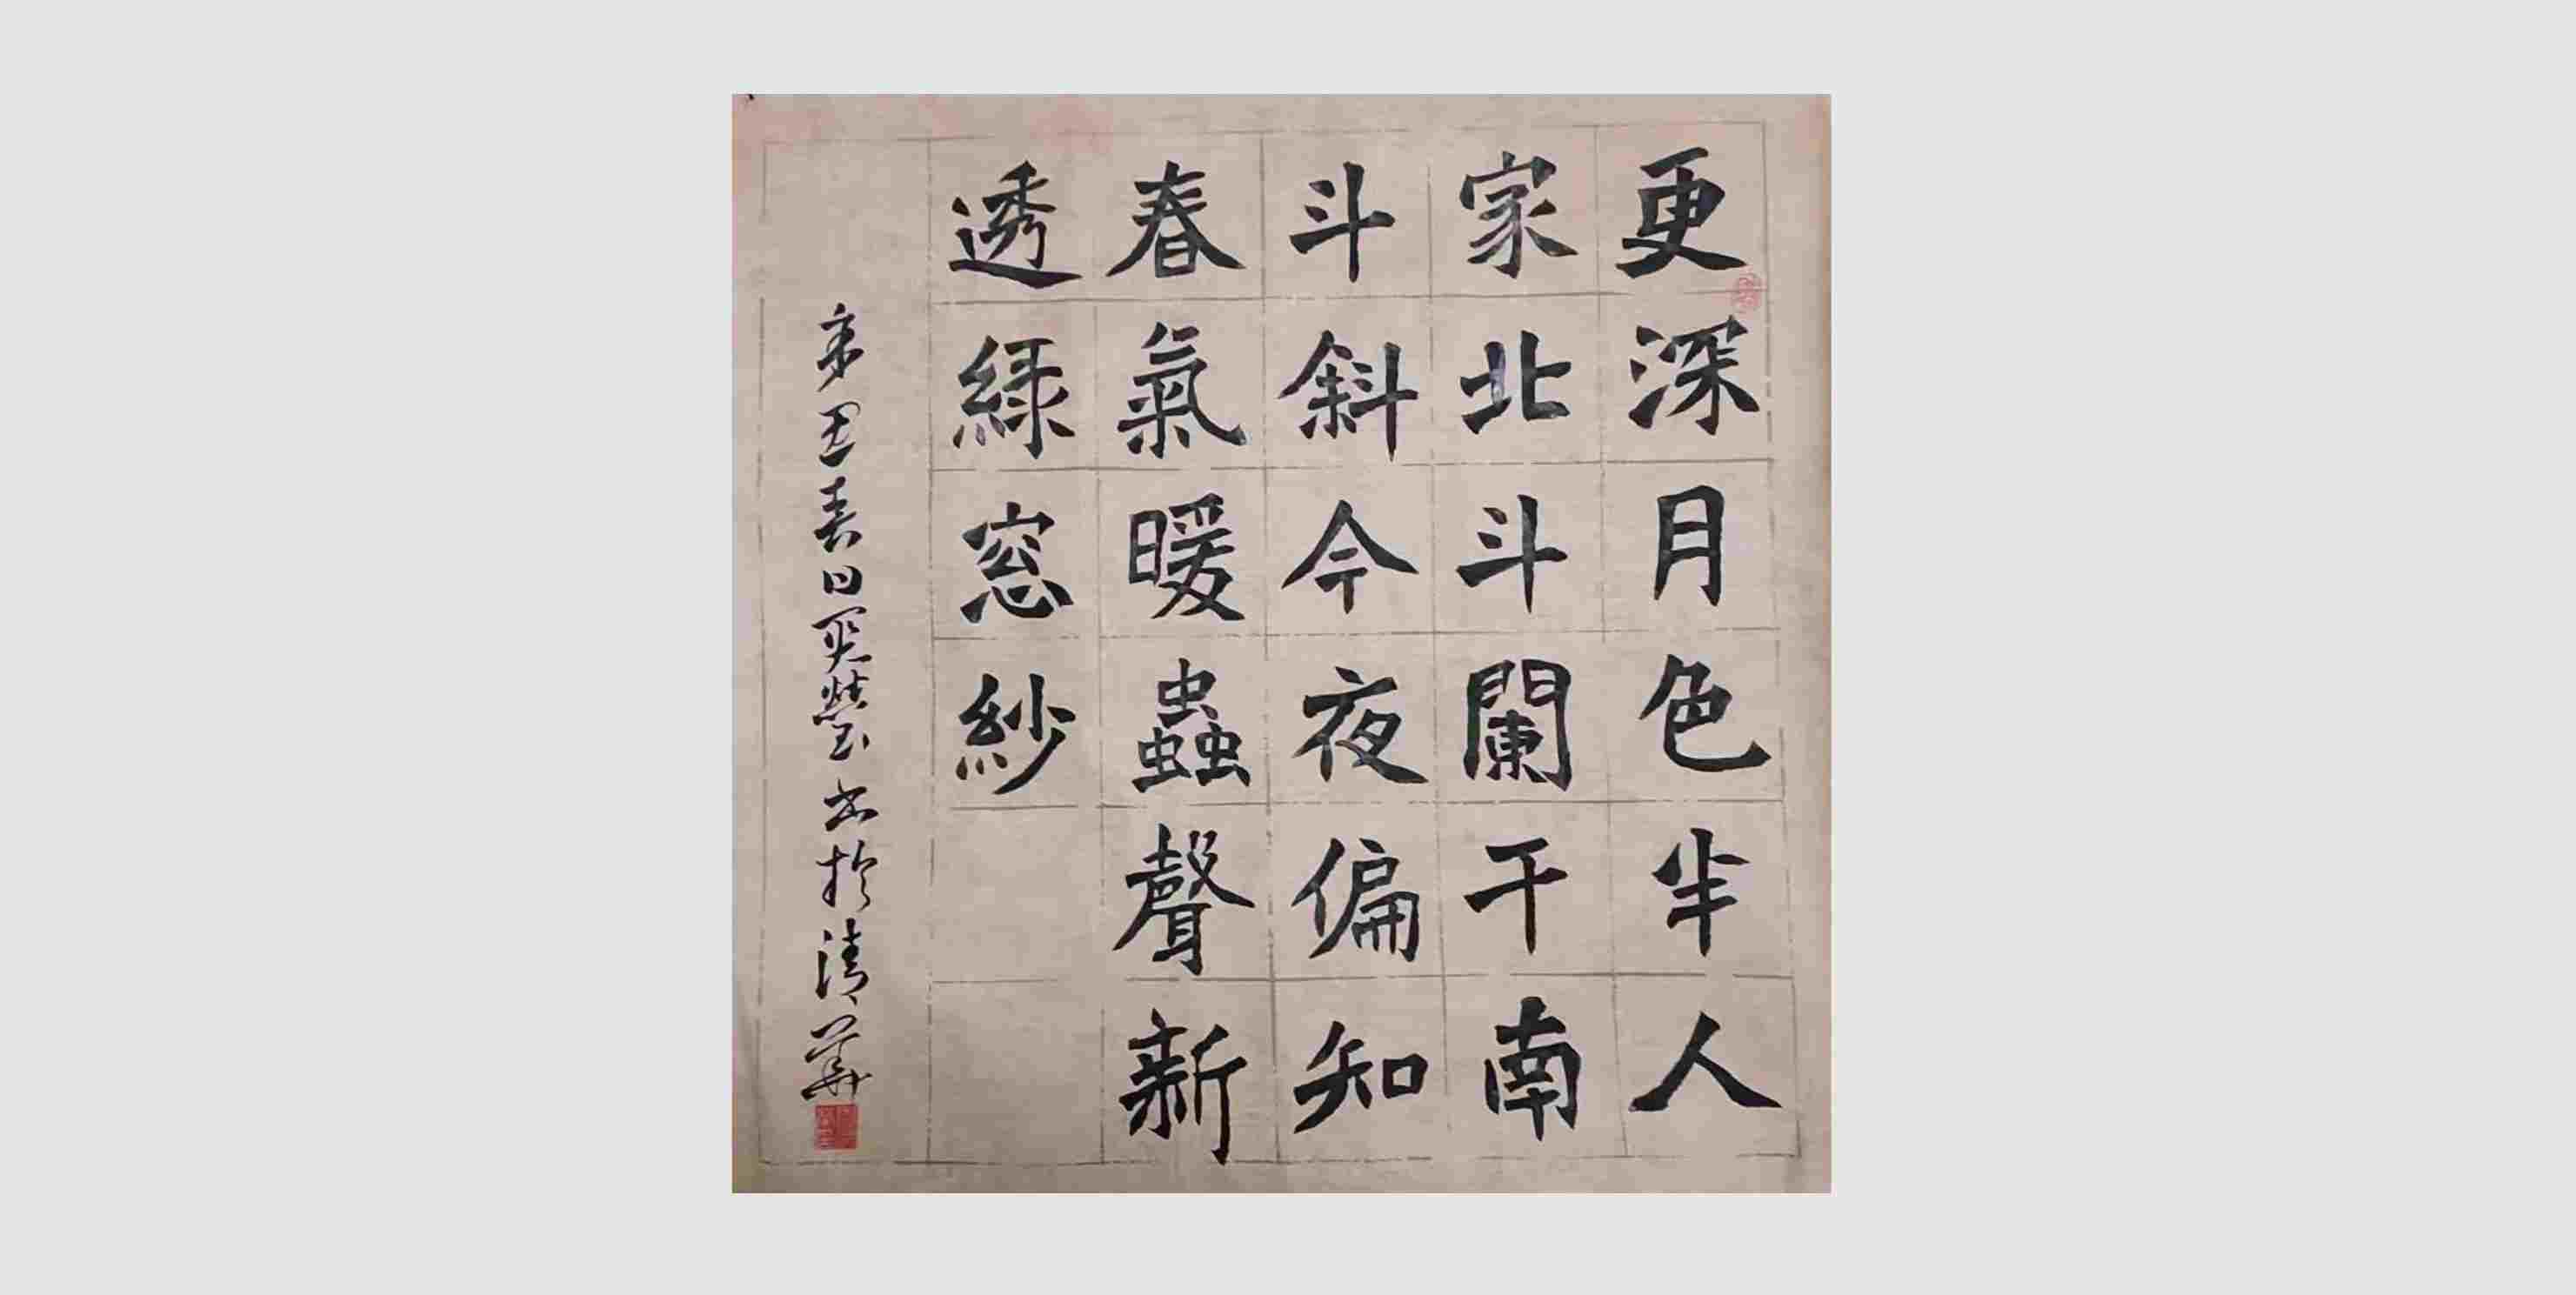 更深月色半人
家北斗闌干南
斗斜今夜偏知
春氣暖蟲聲新
透綠窓紗
辛丑春日 瑩书於清華